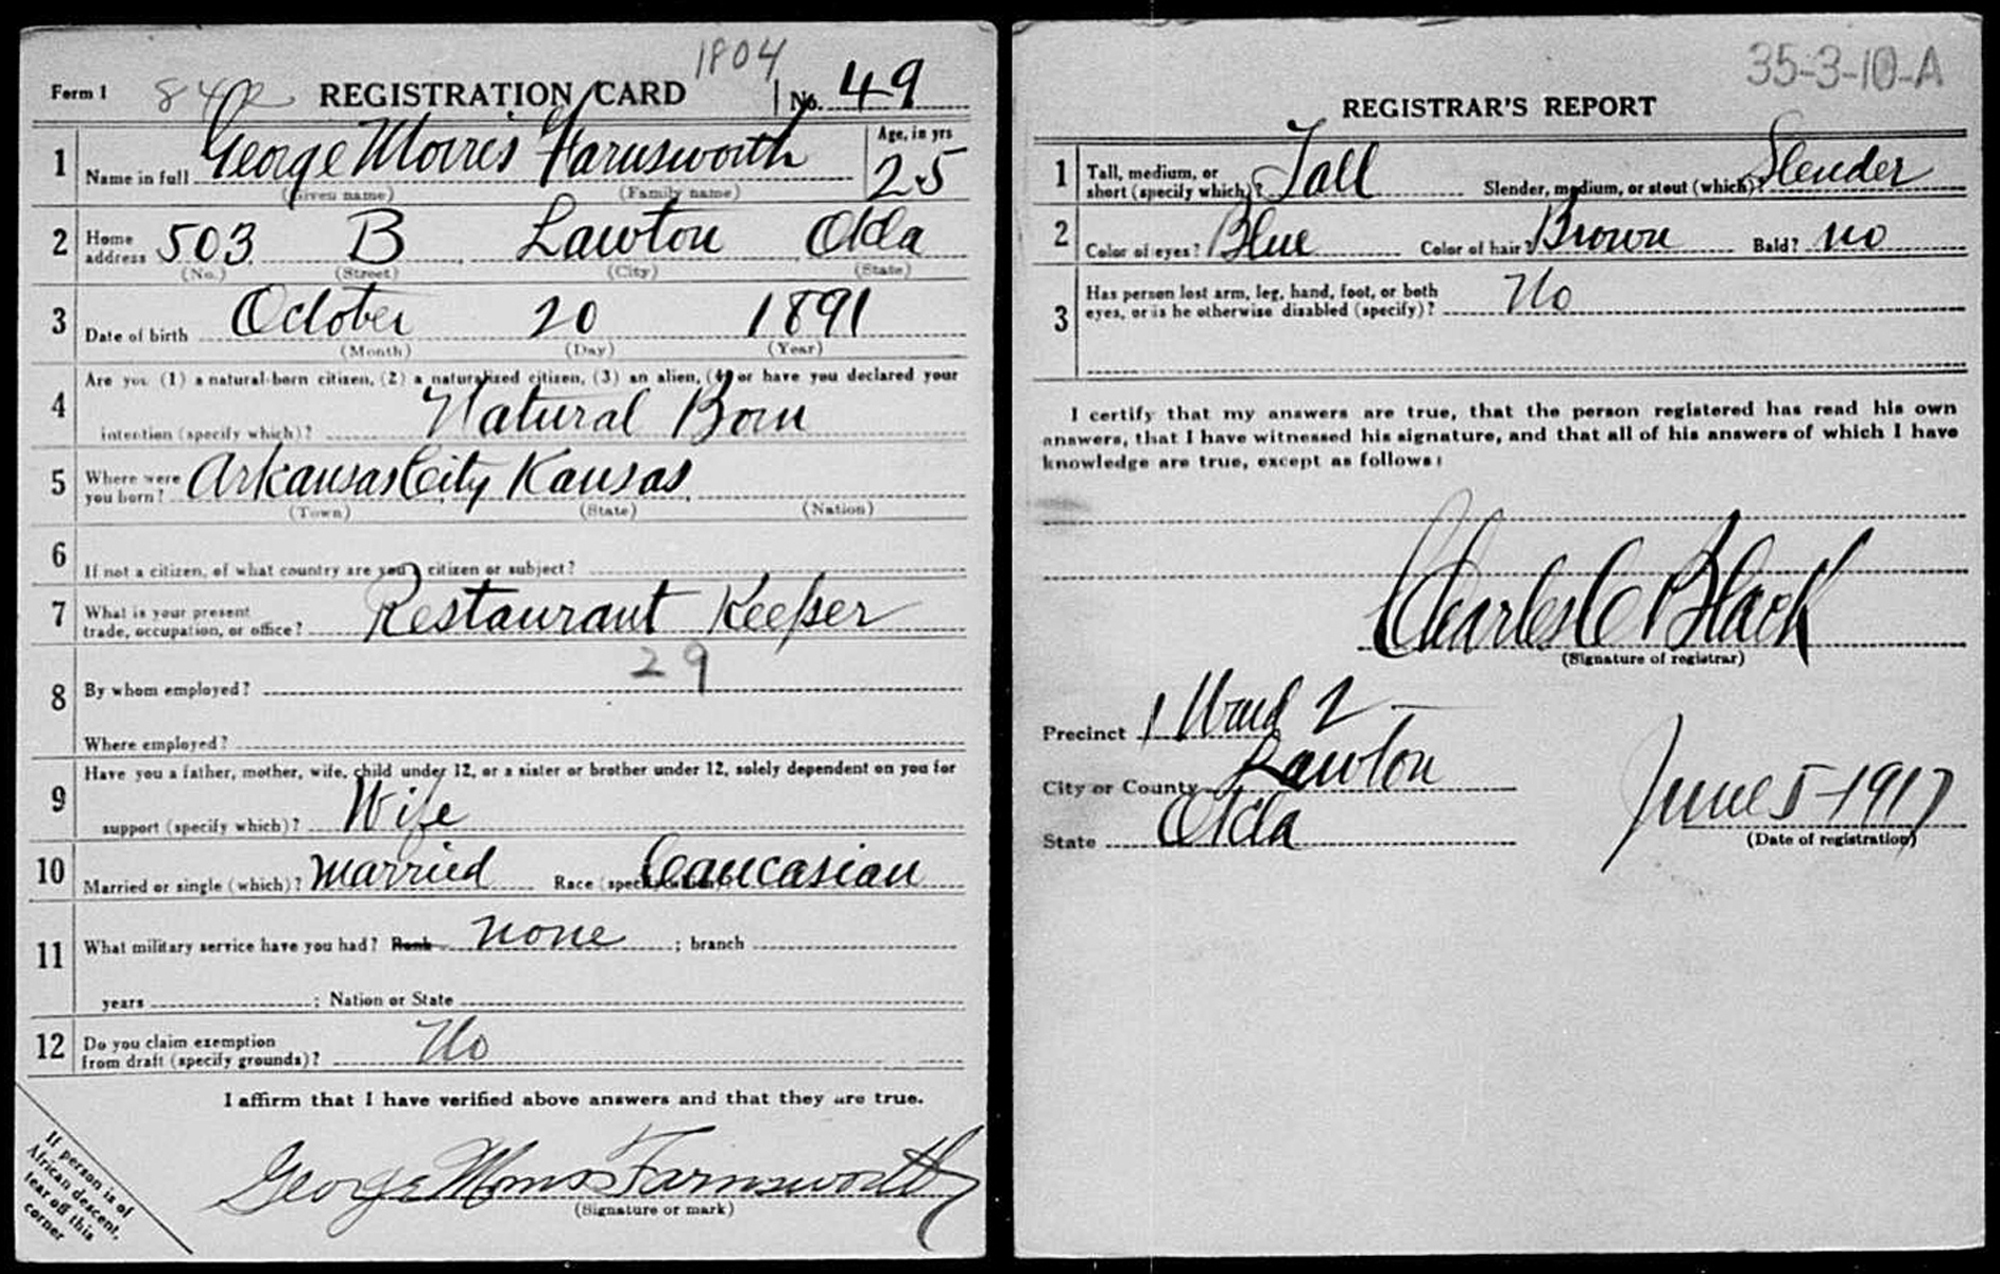 1804
Form 1 842 REGISTRATION CARD No. 49
1 Name in full George Morris Farnsworth Age, in yrs 25
(Given name) (Family name)
2 Home address 503 B Lawton Okla
(No.) (Street) (City) (State)
3 Date of birth October 20 1891
(Month) (Day) (Year)
4 Are you (1) a natural-born citizen, (2) a naturalized citizen, (3) an alien, (4) or have you declared your
intention (specify which)? Natural Born
5 Where were you born? Arkansas City Kansas
(Town) (State) (Nation)
6 If not a citizen, of what country are you a citizen or subject?
7 What is your present
trade, occupation, or office? Restaurant Keeper
29
8 By whom employed?
Where employed?
9 Have you a father, mother, wife, child under 12, or a sister or brother under 12, solely dependent on you for
support (specify which)? Wife
10 Married or single (which)? Married Race (specify which)? Caucasian
11 What military service have you had? Rank none ; branch
years ; Nation or State
12 Do you claim exemption
from draft (specify grounds)? No
I affirm that I have verified above answers and that they are true.
George Morris Farnsworth
(Signature or mark)
If person is of
African descent,
tear off this
corner
35-3-10-A
REGISTRAR'S REPORT
1 Tall, medium, or
short (specify which)? Tall Slender, medium, or stout (which)? Slender
2 Color of eyes? Blue Color of hair? Brown Bald? no
3 Has person lost arm, leg, hand, foot, or both
eyes, or is he otherwise disabled (specify)? No
I certify that my answers are true, that the person registered has read his own
answers, that I have witnessed his signature, and that all of his answers of which I have
knowledge are true, except as follows:
Charles C Black
(Signature of registrar)
Precinct 1 Ward 2
City or County Lawton
State Okla
June 5-1917
(Date of registration)